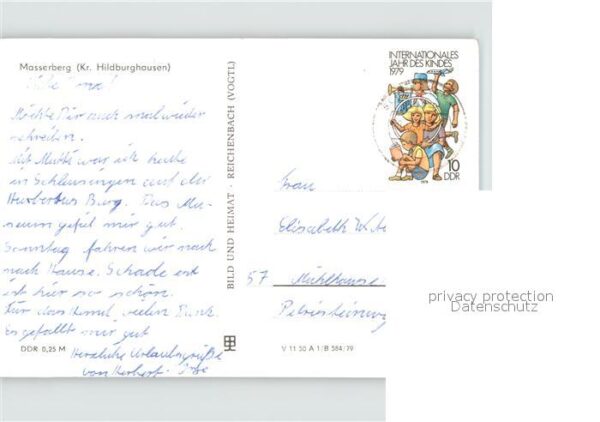 Masserberg (Kr. Hildburghausen)
Möchte Dir auch mal wieder
schreiben.
Mit Mutti war ich heute
in Schleusingen auf der
Burg. Das Mu-
seum gefiel mir gut.
Sonntag fahren wir nach
nach Hause. Schade es ist
ist hier so schön.
Für das Hemd vielen Dank.
Es gefällt mir gut
Herzliche Urlaubsgrüße
von Herbert
DDR 0,25 M
BILD UND HEIMAT · REICHENBACH (VOGTL)
INTERNATIONALES
JAHR DES KINDES
1979
10
DDR
Frau
Elisabeth
57 Mühlhausen
V 11 50 A 1/B 584/79
privacy protection
Datenschutz